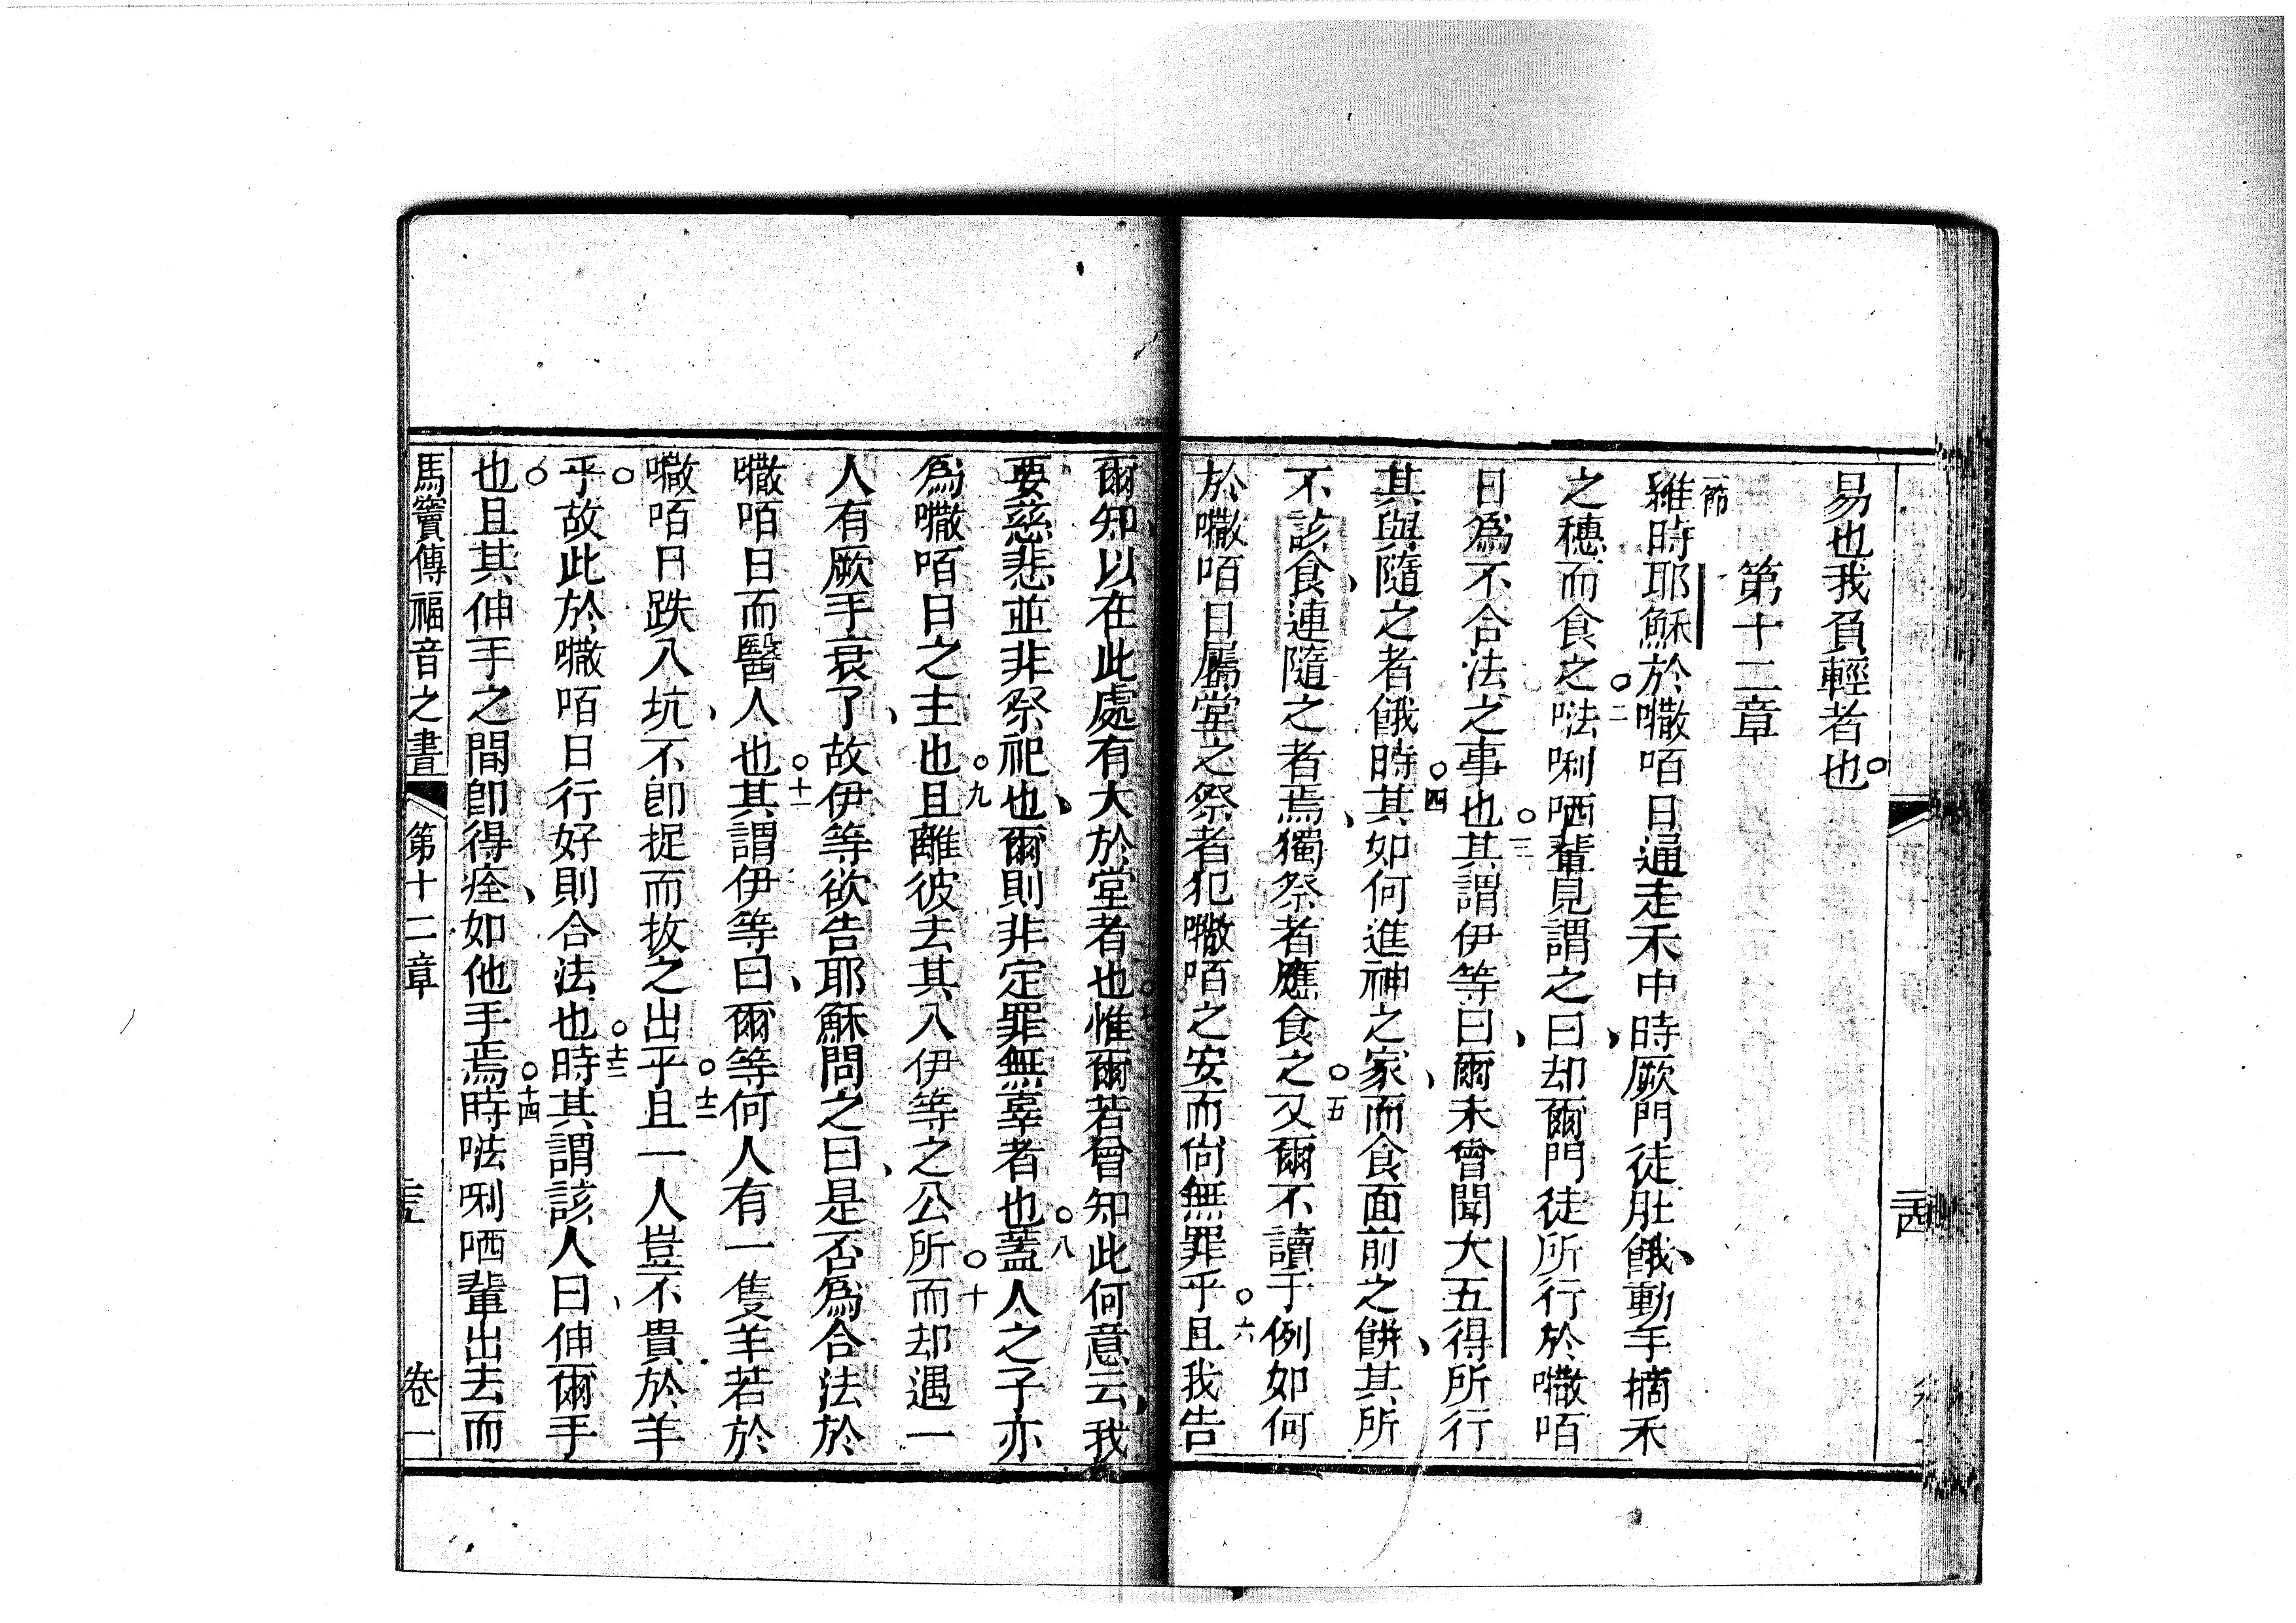 易也我負輕者也○
第十二章
一節雖時耶穌於㘔咟日通走禾中時厥門徒肚餓、動手摘禾
之穗而食之○二㗐唎哂輩見謂之曰、却爾門徒所行於㘔咟
日爲不合法之事也○三其謂伊等曰、爾未曾聞大五得所行
其與隨之者餓時○四其如何進神之家、而食面前之餅、其所
不該食、連隨之者焉、獨祭者應食之○五又爾不讀于例如何
於㘔咟日屬堂之祭者犯㘔咟之安而尙無罪乎○六且我告
爾知、以在此處有大於堂者也○七惟爾若曾知此何意云、我
要慈悲並非祭祀也、爾則非定罪無辜者也○八蓋人之子亦
爲㘔咟日之主也○九且離彼去其入伊等之公所○十而却遇一
人有厥手衰了、故伊等欲告耶穌問之曰、是否爲合法於
㘔咟日而醫人也○十一其謂伊等曰、爾等何人有一隻羊若於
㘔咟日跌入坑、不卽捉而拔之出乎○十二且一人豈不貴於羊
乎○故此於㘔咟日行好則合法也○十三時其謂該人曰、伸爾手
也○且其伸手之間卽得痊、如他手焉○十四時㗐唎哂輩出去而
馬竇傳福音之書 第十二章 二十五 卷一